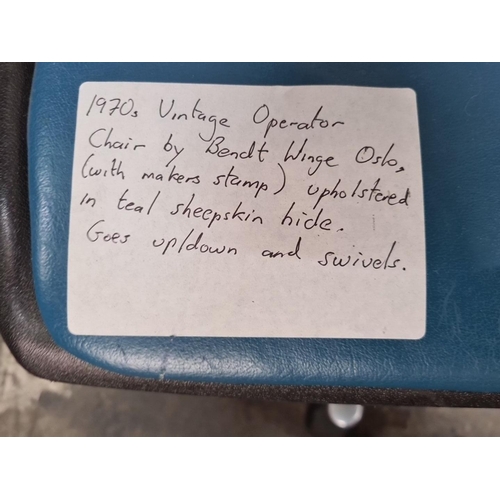 1970s Vintage Operator
Chair by Bendt Winge Oslo,
(with makers stamp) upholstered
in teal sheepskin hide.
Goes up/down and swivels.